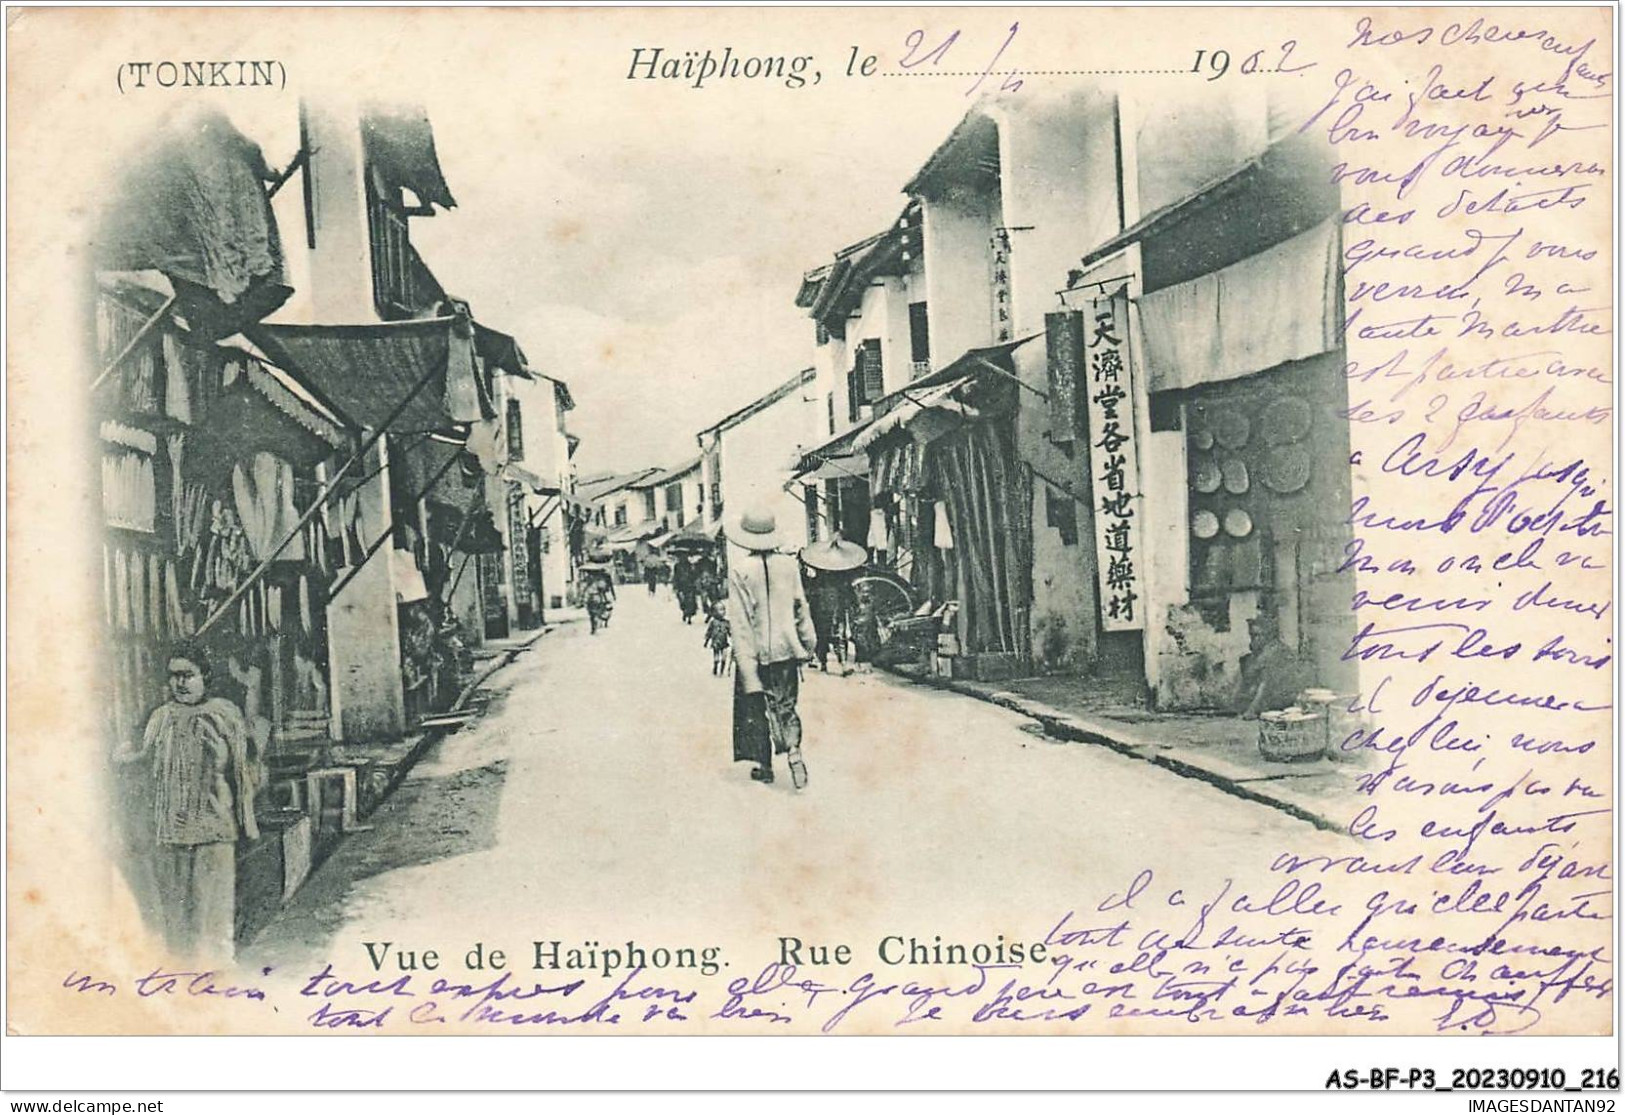 (TONKIN)
Haïphong, le 21/11 1902
Mes chers enfants
J'ai fait un
bon voyage je
vous donnerai
des détails
quand je vous
verrai, Ma
tante Marthe
est partie avec
les 2 enfants
a Cersy jusqu'
Mon oncle va
venir diner
tous les soirs
il dejeunera
chez lui, nous
n'avons pas vu
les enfants
avant leur départ
il a fallu qu'elle parte
tout de suite heureusement
qu'elle n'a pas
un train tout exprès pour elle, grand père est tout a fait remis
tout le monde va bien Je vous embrasse bien
天濟堂各省地道藥材
天濟堂
Vue de Haïphong. Rue Chinoise.
AS-BF-P3_20230910_216
delcampe.net
IMAGESDANTAN92